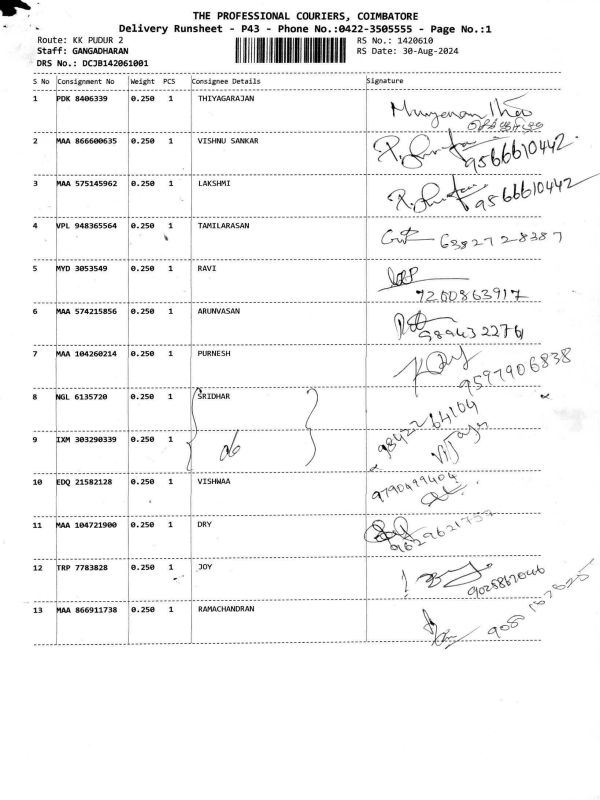 THE PROFESSIONAL COURIERS, COIMBATORE
Delivery Runsheet - P43 - Phone No.:0422-3505555 - Page No.:1
Route: KK PUDUR 2 RS No.: 1420610
Staff: GANGADHARAN RS Date: 30-Aug-2024
DRS No.: DCJB142061001
S No Consignment No Weight PCS Consignee Details Signature
1 PDK 8406339 0.250 1 THIYAGARAJAN
2 MAA 866600635 0.250 1 VISHNU SANKAR
9566610442
3 MAA 575145962 0.250 1 LAKSHMI
9566610442
4 VPL 948365564 0.250 1 TAMILARASAN
6382728387
5 MYD 3053549 0.250 1 RAVI
7200863917
6 MAA 574215856 0.250 1 ARUNVASAN
7 MAA 104260214 0.250 1 PURNESH
9597906838
8 NGL 6135720 0.250 1 SRIDHAR
9842264104
9 IXM 303290339 0.250 1
10 EDQ 21582128 0.250 1 VISHWAA
9790499404
11 MAA 104721900 0.250 1 DRY
12 TRP 7783828 0.250 1 JOY
13 MAA 866911738 0.250 1 RAMACHANDRAN